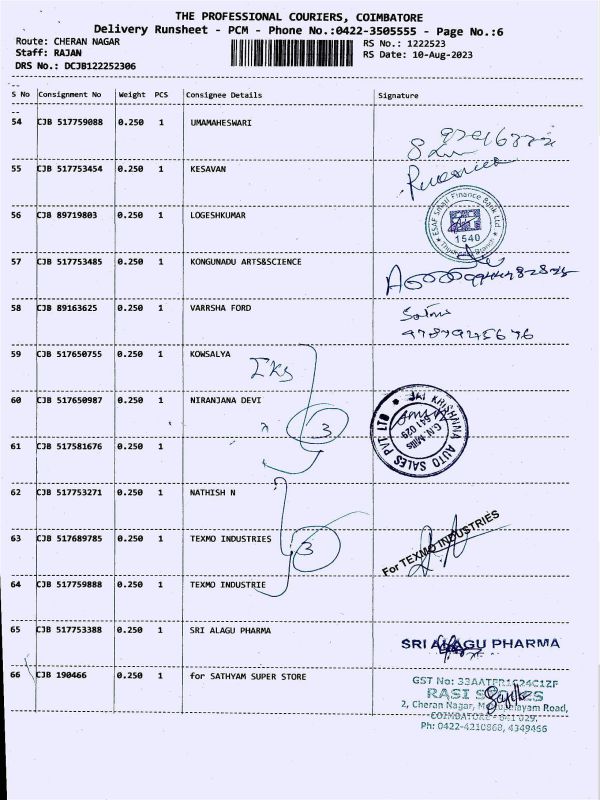 THE PROFESSIONAL COURIERS, COIMBATORE
Delivery Runsheet - PCM - Phone No.:0422-3505555 - Page No.:6
Route: CHERAN NAGAR
RS No.: 1222523
Staff: RAJAN
RS Date: 10-Aug-2023
DRS No.: DCJB122252306
S No Consignment No Weight PCS Consignee Details Signature
54 CJB 517759088 0.250 1 UMAMAHESWARI
55 CJB 517753454 0.250 1 KESAVAN
56 CJB 89719803 0.250 1 LOGESHKUMAR
ESAF Small Finance Bank Ltd
1540
57 CJB 517753485 0.250 1 KONGUNADU ARTS&SCIENCE
58 CJB 89163625 0.250 1 VARRSHA FORD
59 CJB 517650755 0.250 1 KOWSALYA
60 CJB 517650987 0.250 1 NIRANJANA DEVI
3
JAI KRISHNAA AUTO SALES PVT LTD
G.N. Mills
641 029
61 CJB 517581676 0.250 1
62 CJB 517753271 0.250 1 NATHISH N
63 CJB 517689785 0.250 1 TEXMO INDUSTRIES
3
For TEXMO INDUSTRIES
64 CJB 517759888 0.250 1 TEXMO INDUSTRIE
65 CJB 517753388 0.250 1 SRI ALAGU PHARMA
SRI ALAGU PHARMA
66 CJB 190466 0.250 1 for SATHYAM SUPER STORE
GST No:
RASI
2, Cheran Nagar, Road,
COIMBATORE - 641 029.
Ph: 0422-4210868, 4349456